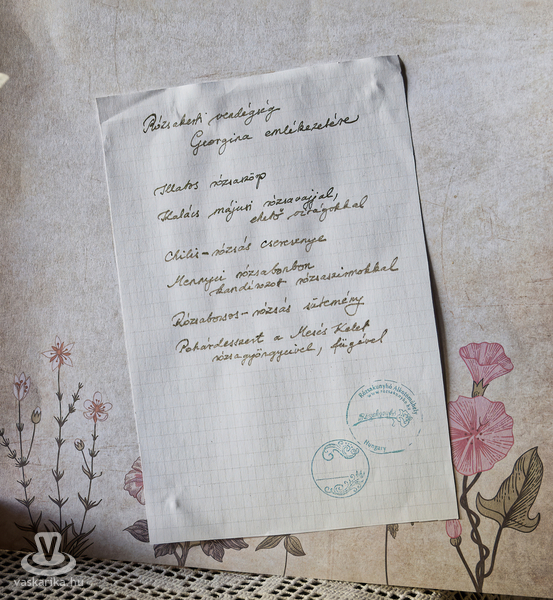 Rózsakerti vendégség
Georgina emlékezetére
Illatos rózsaszörp
Kalács májusi rózsavajjal,
ehető virágokkal
Chilis-rózsás cseresznye
Mennyei rózsabonbon
kandírozott rózsaszirmokkal
Rózsaborsos-rózsás sütemény
Pohárdesszert a Mesés Kelet
rózsagyöngyeivel, fügével
Rózsakonyha Alkotóműhely
www.rozsakonyha.hu
Rózsakonyha
Hungary
vaskarika.hu